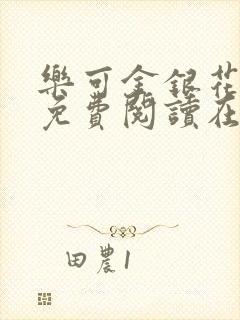 樂可金銀花
免費閱讀在
田農1